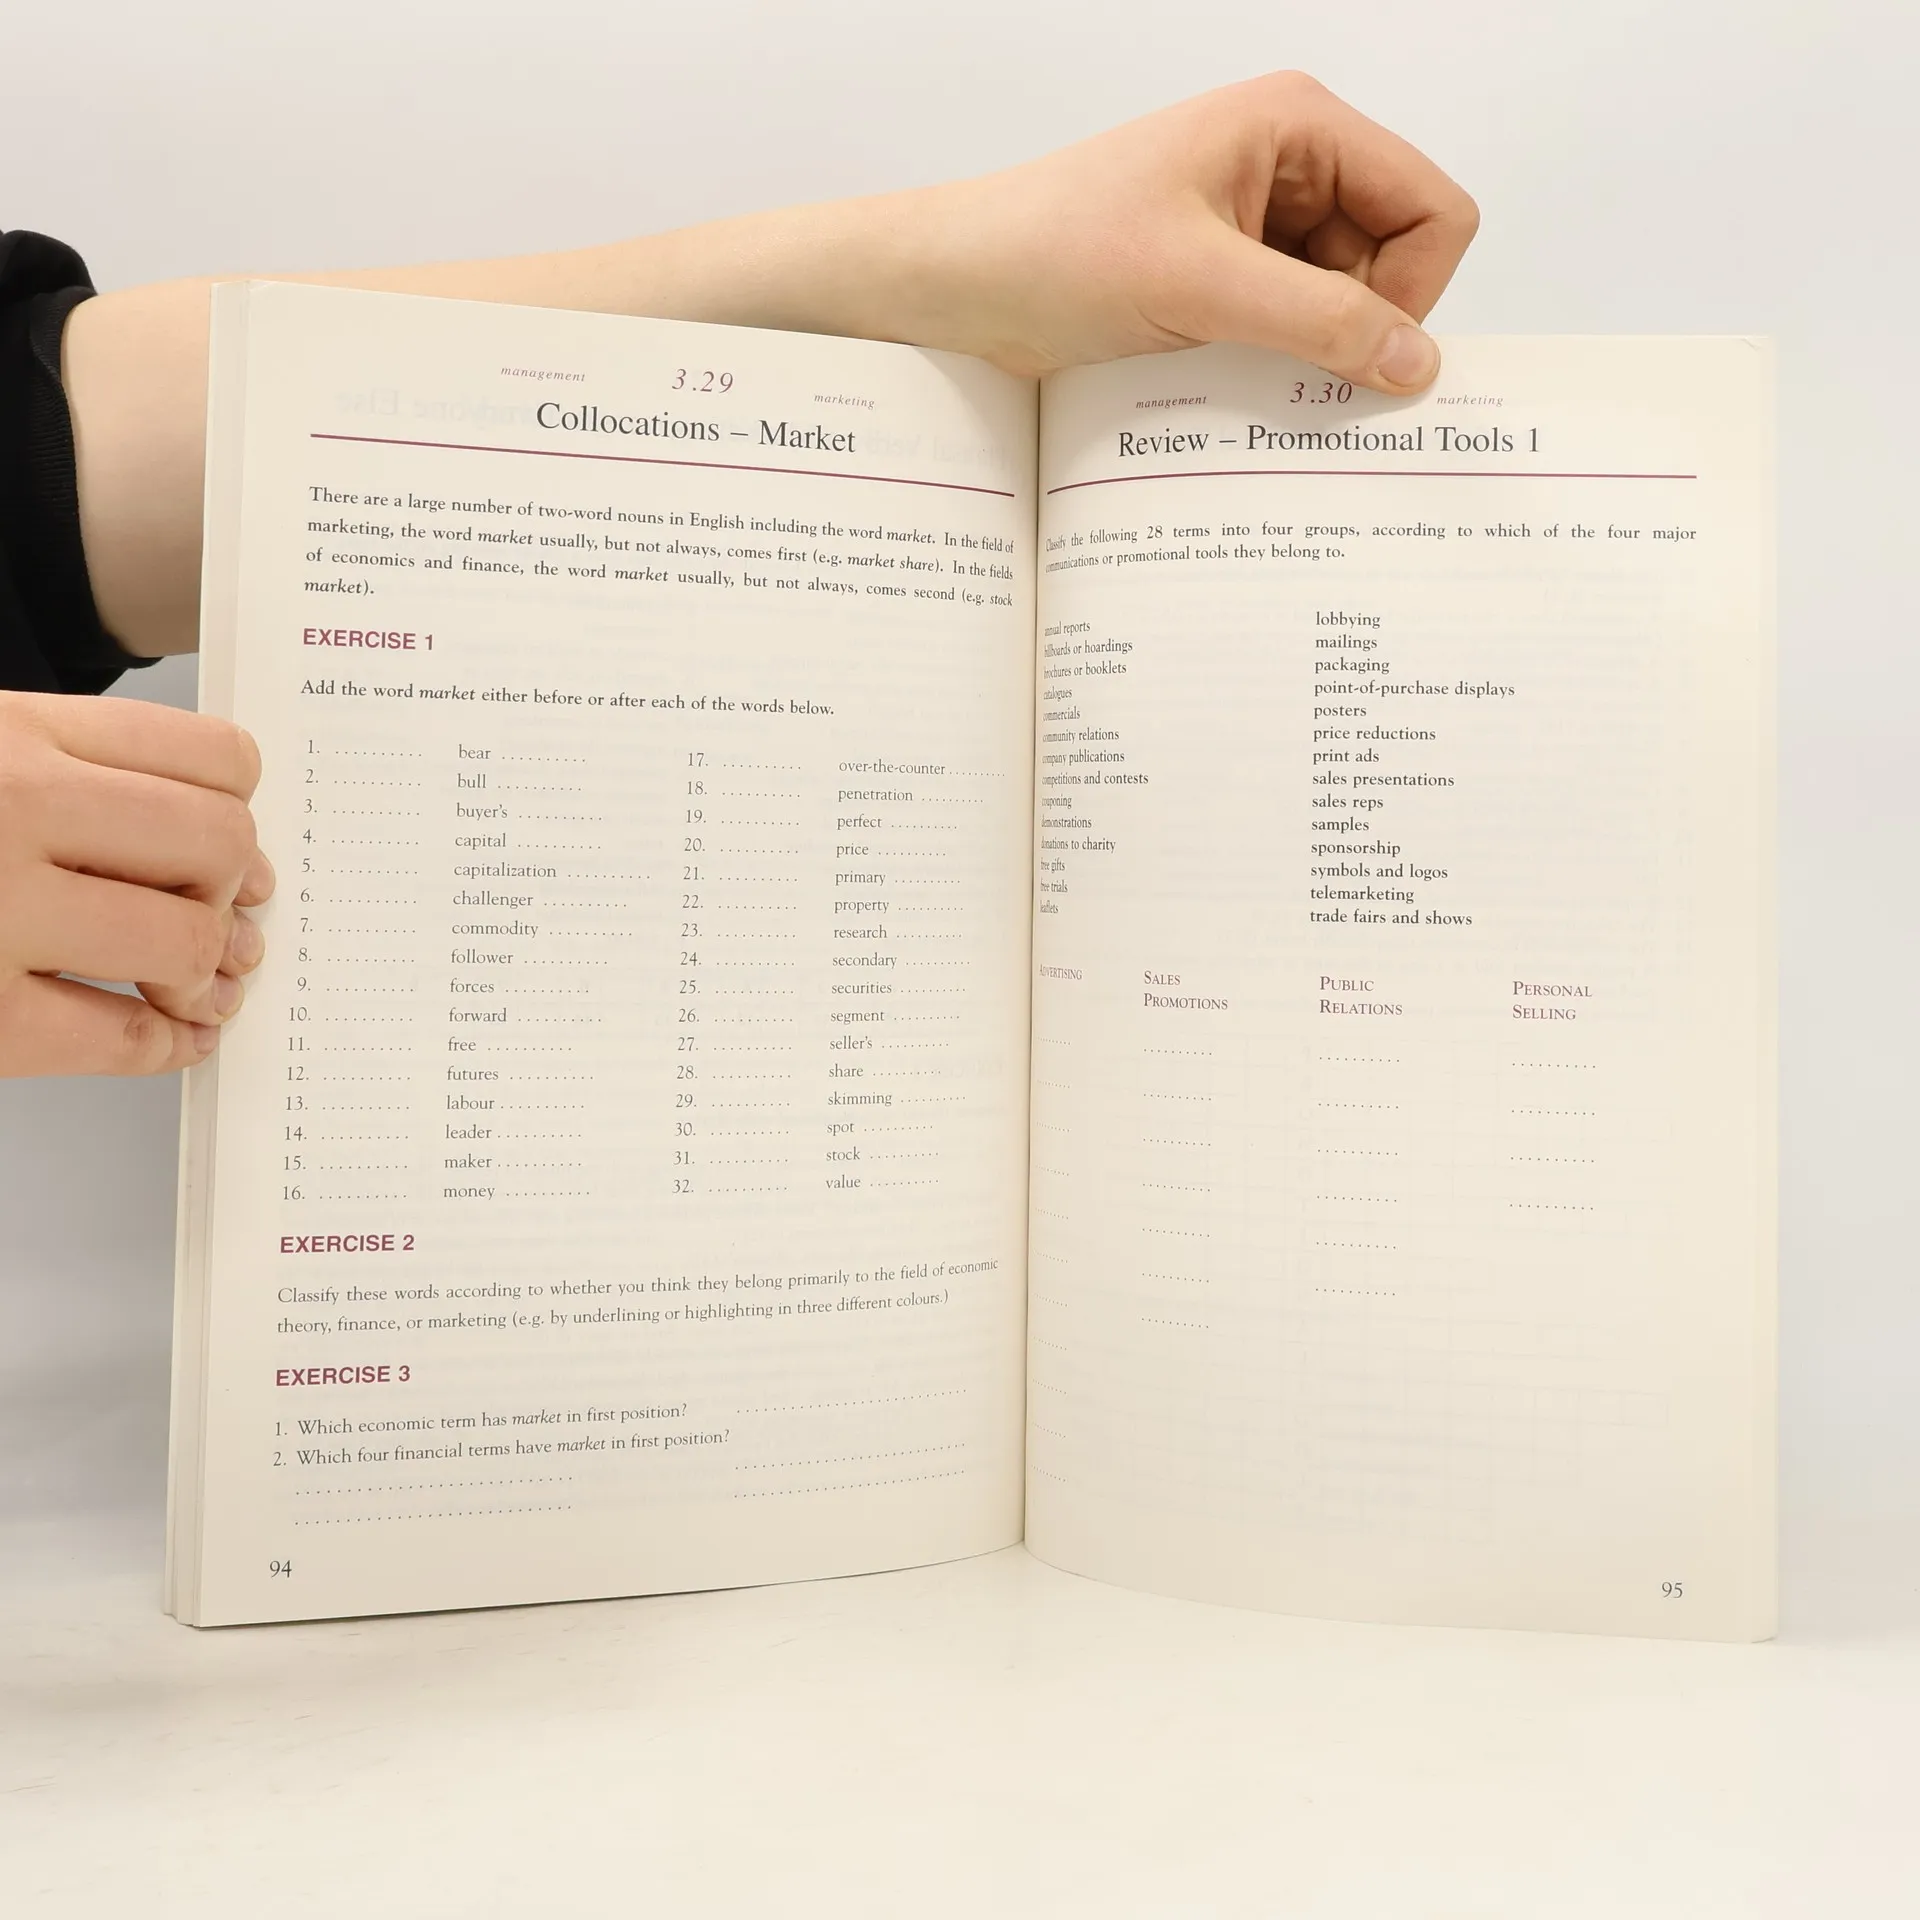 management 3.29 marketing
Collocations – Market
There are a large number of two-word nouns in English including the word market. In the field of
marketing, the word market usually, but not always, comes first (e.g. market share). In the fields
of economics and finance, the word market usually, but not always, comes second (e.g. stock
market).
EXERCISE 1
Add the word market either before or after each of the words below.
1. .......... bear ..........
2. .......... bull ..........
3. .......... buyer's ..........
4. .......... capital ..........
5. .......... capitalization ..........
6. .......... challenger ..........
7. .......... commodity ..........
8. .......... follower ..........
9. .......... forces ..........
10. .......... forward ..........
11. .......... free ..........
12. .......... futures ..........
13. .......... labour ..........
14. .......... leader ..........
15. .......... maker ..........
16. .......... money ..........
17. .......... over-the-counter ..........
18. .......... penetration ..........
19. .......... perfect ..........
20. .......... price ..........
21. .......... primary ..........
22. .......... property ..........
23. .......... research ..........
24. .......... secondary ..........
25. .......... securities ..........
26. .......... segment ..........
27. .......... seller's ..........
28. .......... share ..........
29. .......... skimming ..........
30. .......... spot ..........
31. .......... stock ..........
32. .......... value ..........
EXERCISE 2
Classify these words according to whether you think they belong primarily to the field of economic
theory, finance, or marketing (e.g. by underlining or highlighting in three different colours.)
EXERCISE 3
1. Which economic term has market in first position?
2. Which four financial terms have market in first position?
94
management 3.30 marketing
Review – Promotional Tools 1
Classify the following 28 terms into four groups, according to which of the four major
communications or promotional tools they belong to.
annual reports
billboards or hoardings
brochures or booklets
catalogues
commercials
community relations
company publications
competitions and contests
couponing
demonstrations
donations to charity
free gifts
free trials
leaflets
lobbying
mailings
packaging
point-of-purchase displays
posters
price reductions
print ads
sales presentations
sales reps
samples
sponsorship
symbols and logos
telemarketing
trade fairs and shows
ADVERTISING
SALES
PROMOTIONS
PUBLIC
RELATIONS
PERSONAL
SELLING
95